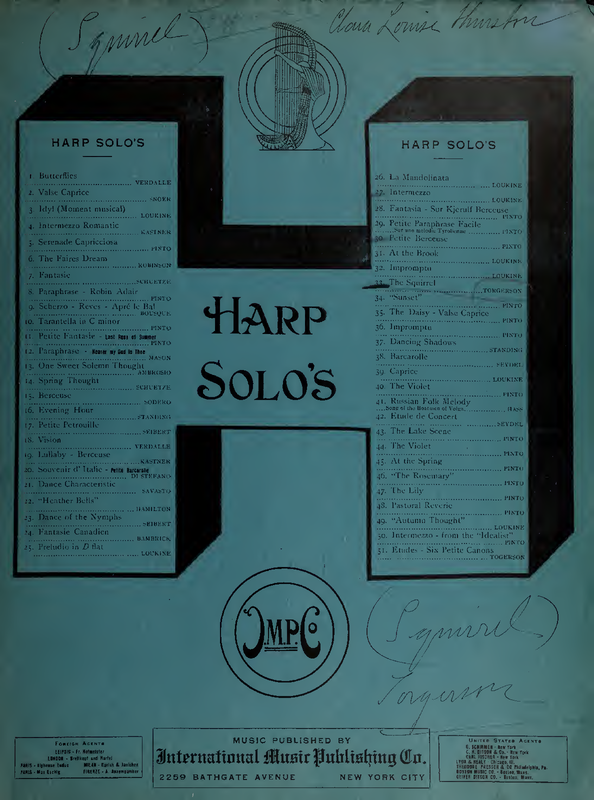 (Squirrel)
Clara Louise Thurston
HARP SOLO'S
1. Butterflies
VERDALLE
2. Valse Caprice
SNOER
3. Idyl (Moment musical)
LOUKINE
4. Intermezzo Romantic
KASTNER
5. Serenade Capricciosa
PINTO
6. The Faires Dream
ROBINSON
7. Fantasie
SCHUETZE
8. Paraphrase - Robin Adair
PINTO
9. Scherzo - Reves - Apré le Bal
10. Tarantella in C minor
PINTO
11. Petite Fantasie - Last Rose of Summer
PINTO
12. Paraphrase - Nearer my God to Thee
MASON
13. One Sweet Solemn Thought
AMBROSIO
14. Spring Thought
SCHUETZE
15. Berceuse
SODERO
16. Evening Hour
STANDING
17. Petite Petrouille
SEIBERT
18. Vision
VERDALLE
19. Lullaby - Berceuse
KASTNER
20. Souvenir d'Italie - Petite Barcarolle
DI STEFANO
21. Dance Characteristic
SAVASTO
22. "Heather Bells"
HAMILTON
23. Dance of the Nymphs
SEIBERT
24. Fantasie Canadien
RAMBRICK
25. Preludio in D flat
LOUKINE
HARP
SOLO'S
HARP SOLO'S
26. La Mandolinata
LOUKINE
27. Intermezzo
LOUKINE
28. Fantasia - Sor Kjerulf Berceuse
PINTO
29. Petite Paraphrase Facile
Sur une melodie Tyrolienne
PINTO
30. Petite Berceuse
PINTO
31. At the Brook
LOUKINE
32. Impromptu
LOUKINE
The Squirrel
TORGERSON
34. "Sunset"
PINTO
35. The Daisy - Valse Caprice
PINTO
36. Impromptu
PINTO
37. Dancing Shadows
STANDING
38. Barcarolle
SEYDEL
39. Caprice
LOUKINE
40. The Violet
PINTO
41. Russian Folk Melody
Song of the Boatmen of Volga
42. Etude de Concert
SEYDEL
43. The Lake Scene
PINTO
44. The Violet
PINTO
45. At the Spring
PINTO
46. "The Rosemary"
PINTO
47. The Lily
PINTO
48. Pastoral Reverie
PINTO
49. "Autumn Thought"
LOUKINE
50. Intermezzo - from the "Idealist"
PINTO
51. Etudes - Six Petite Canons
TOGERSON
I.M.P.Co
(Squirrel)
Torgerson
FOREIGN AGENTS
LEIPSIG - Fr. Hofmeister
LONDON - Breitkopf and Hartel
PARIS - Alphonse Leduc
PARIS - Max Eschig
MUSIC PUBLISHED BY
International Music Publishing Co.
2259 BATHGATE AVENUE NEW YORK CITY
UNITED STATES AGENTS
G. SCHIRMER - New York
C. H. DITSON & Co. - New York
CARL FISCHER - New York
LYON & HEALY Chicago, Ill.
THEODORE PRESSER & Co Philadelphia, Pa.
BOSTON MUSIC CO. - Boston, Mass.
OLIVER DITSON CO. - Boston, Mass.